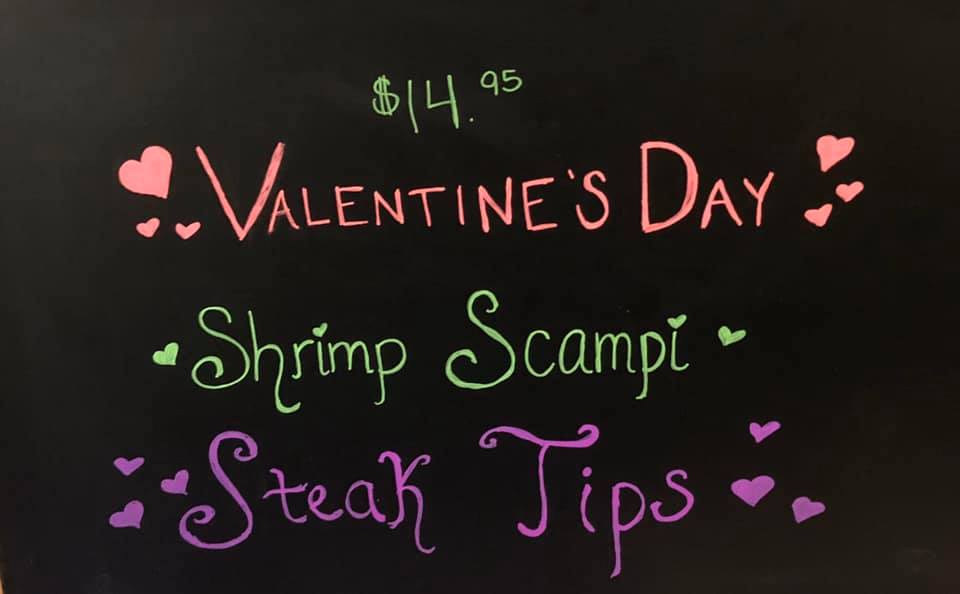 $14.95
VALENTINE'S DAY
Shrimp Scampi
Steak Tips